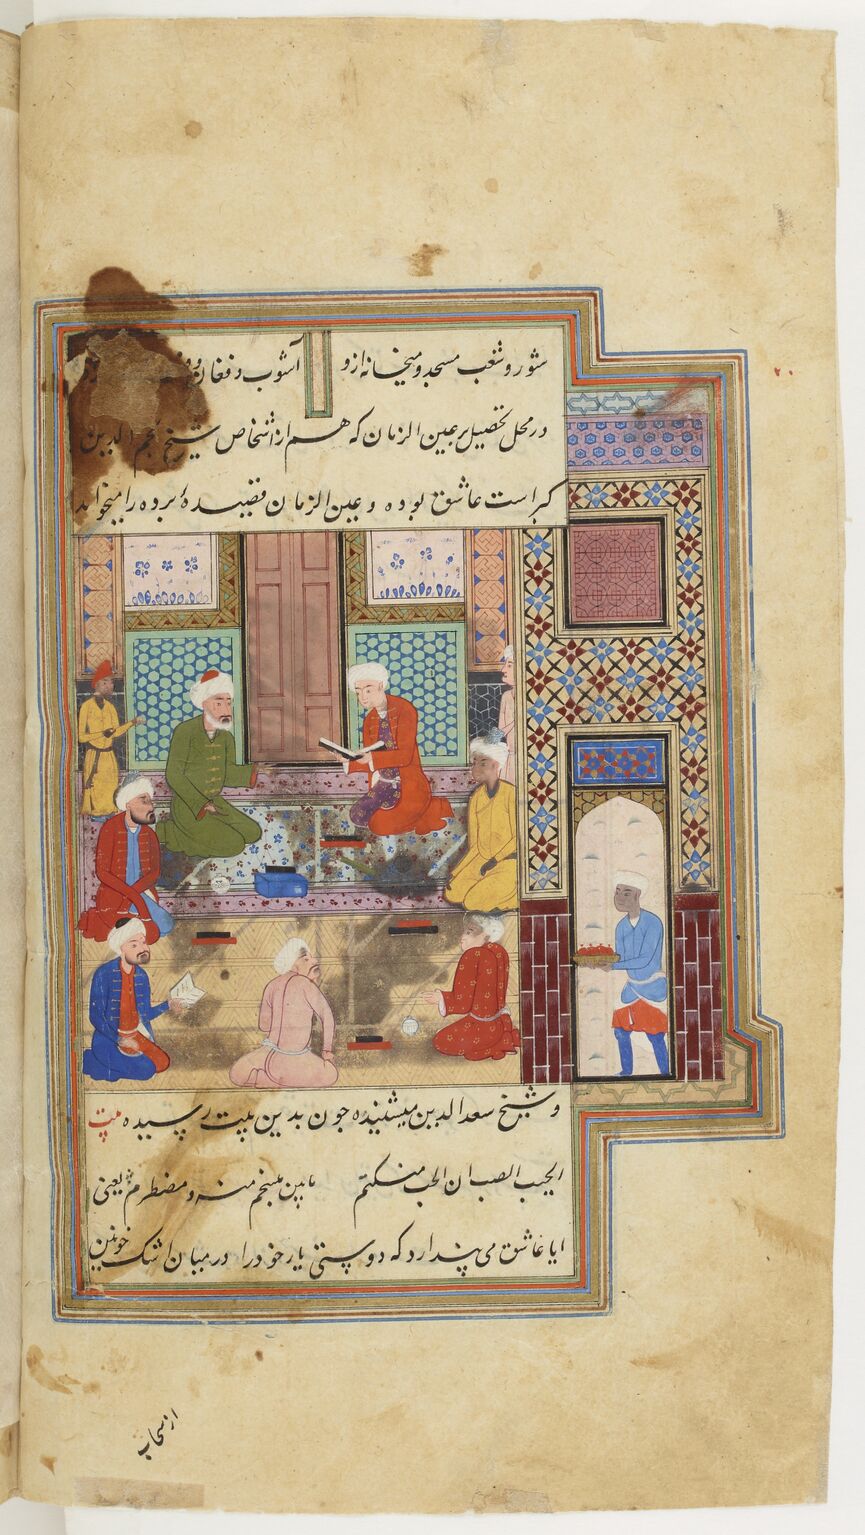 شور و شغب مسجد و میخانه ازو آشوب و فغان
در محل تحصیل بر عین الزمان که هم از اشخاص شیخ نجم الدین
کبراست عاشق بوده و عین الزمان قصیده برده را میخواند
۲۰
و شیخ سعد الدین میشنیده چون بدین بیت رسیده بیت
ایحسب الصب ان الحب منکتم مابین منسجم منه و مضطرم یعنی
ایا عاشق می پندارد که دوستی یار خود را در میان اشک خونین
از سحاب